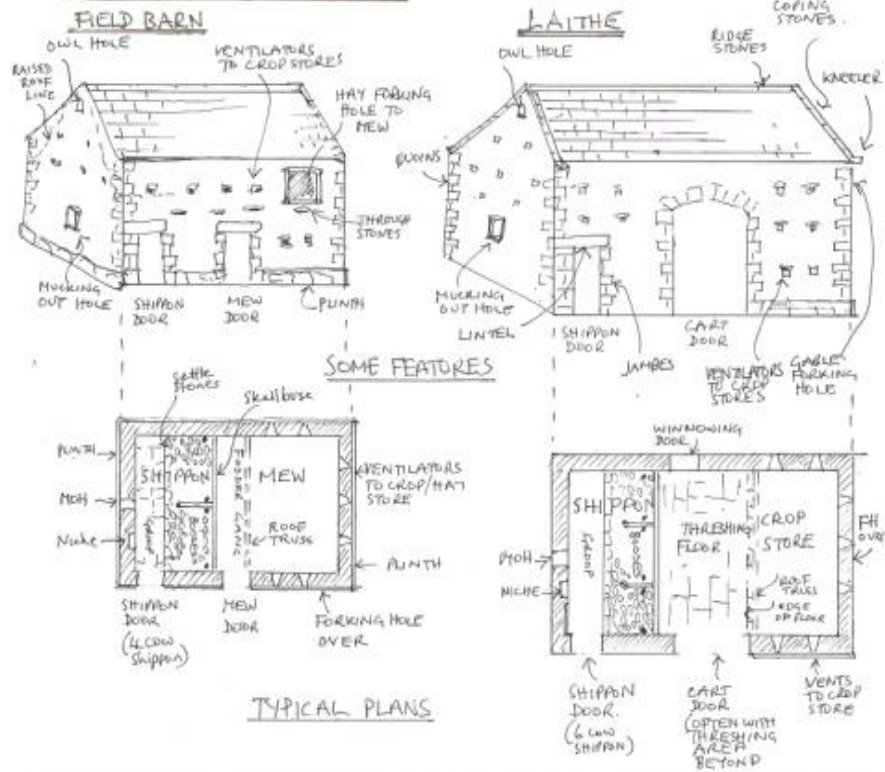 FIELD BARN
OWL HOLE
RAISED
ROOF
LINE
VENTILATORS
TO CROP STORES
HAY FORKING
HOLE TO
MEW
THROUGH
STONES
MUCKING
OUT HOLE
SHIPPON
DOOR
MEW
DOOR
PLINTH
LAITHE
OWL HOLE
RIDGE
STONES
COPING
STONES.
KNEELER
QUOINS
MUCKING
OUT HOLE
LINTEL
SHIPPON
DOOR
JAMBES
CART
DOOR
VENTILATORS
TO CROP
STORES
GABLE
FORKING
HOLE
SOME FEATURES
Settle
Stones
Skellbuse
PLINTH
MOH
Niche
SHIPPON
Group
BOOSES
FODDER GANG
MEW
ROOF
TRUSS
VENTILATORS
TO CROP/HAY
STORE
PLINTH
SHIPPON
DOOR
(4 COW
Shippon)
MEW
DOOR
FORKING HOLE
OVER
WINNOWING
DOOR
MOH
NICHE
SHIPPON
GROOP
BOOSES
THRESHING
FLOOR
CROP
STORE
ROOF
TRUSS
EDGE
OF FLOOR
FH
OVER
SHIPPON
DOOR.
(6 COW
SHIPPON)
CART
DOOR
(OFTEN WITH
THRESHING
AREA
BEYOND
VENTS
TO CROP
STORE
TYPICAL PLANS